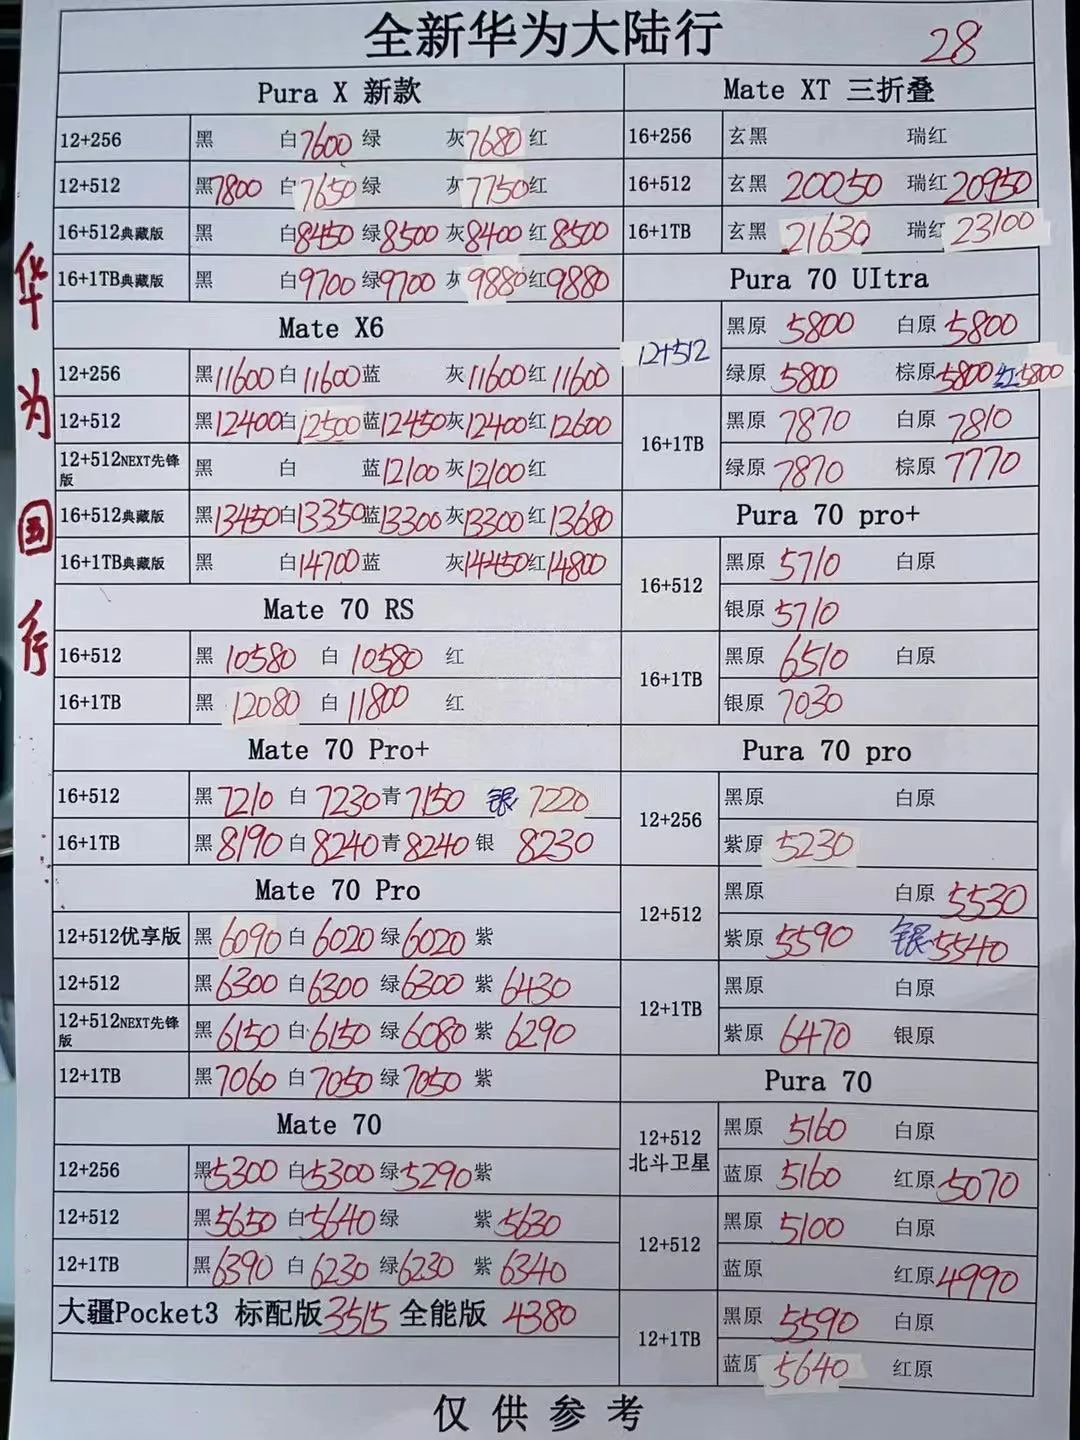 全新华为大陆行
28
华为国行
Pura X 新款
12+256 黑 白7600 绿 灰7680 红
12+512 黑7800 白7650 绿 灰7750 红
16+512典藏版 黑 白8450 绿8500 灰8400 红8500
16+1TB典藏版 黑 白9700 绿9700 灰9880 红9880
Mate X6
12+256 黑11600 白11600 蓝 灰11600 红11600
12+512 黑12400 白12500 蓝12450 灰12400 红12600
12+512NEXT先锋版 黑 白 蓝12100 灰12100 红
16+512典藏版 黑13450 白13350 蓝13300 灰13300 红13680
16+1TB典藏版 黑 白14700 蓝 灰14450 红14800
Mate 70 RS
16+512 黑 10580 白 10580 红
16+1TB 黑 12080 白 11800 红
Mate 70 Pro+
16+512 黑7210 白 7230 青7150 银 7220
16+1TB 黑8190 白8240 青8240 银 8230
Mate 70 Pro
12+512优享版 黑 6090 白6020 绿6020 紫
12+512 黑6300 白6300 绿6300 紫 6430
12+512NEXT先锋版 黑6150 白6150 绿6080 紫 6290
12+1TB 黑7060 白7050 绿7050 紫
Mate 70
12+256 黑5300 白5300 绿5290 紫
12+512 黑5650 白5640 绿 紫5630
12+1TB 黑6390 白6230 绿6230 紫 6340
大疆Pocket3 标配版3515 全能版 4380
Mate XT 三折叠
16+256 玄黑 瑞红
16+512 玄黑 20050 瑞红20950
16+1TB 玄黑 21630 瑞红 23100
Pura 70 UItra
12+512 黑原 5800 白原 5800
绿原 5800 棕原5800 红5800
16+1TB 黑原 7870 白原 7810
绿原 7870 棕原 7770
Pura 70 pro+
16+512 黑原 5710 白原
银原 5710
16+1TB 黑原 6510 白原
银原 7030
Pura 70 pro
12+256 黑原 白原
紫原 5230
12+512 黑原 白原 5530
紫原 5590 银 5540
12+1TB 黑原 白原
紫原 6470 银原
Pura 70
12+512北斗卫星 黑原 5160 白原
蓝原 5160 红原5070
12+512 黑原 5100 白原
蓝原 红原4990
12+1TB 黑原 5590 白原
蓝原 5640 红原
仅供参考